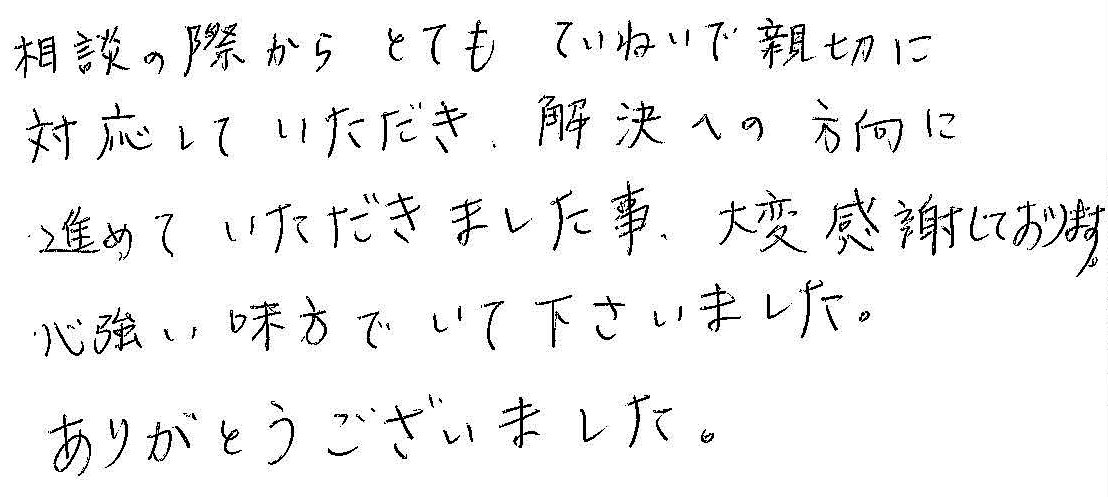 相談の際から とても ていねいで親切に
対応して いただき、解決への方向に
進めて いただきました事、大変感謝しております。
心強い味方で いて下さいました。
ありがとうございました。